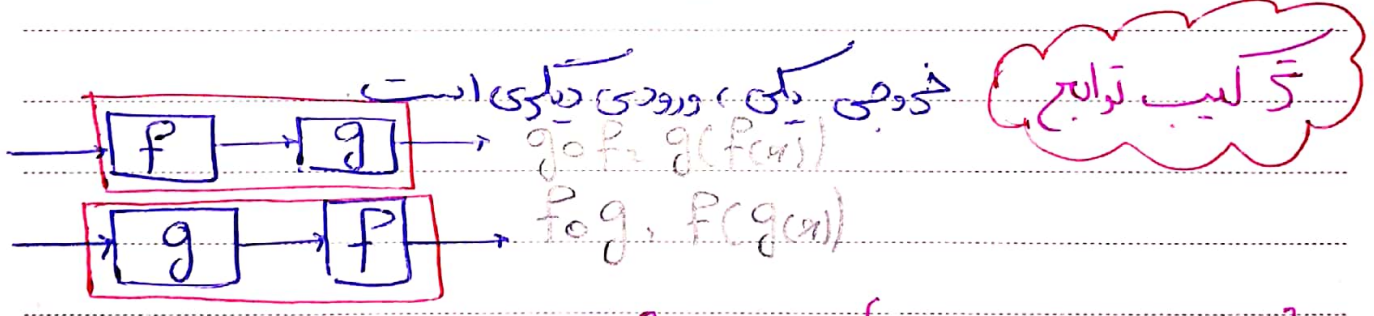 ترکیب توابع
خروجی یکی، ورودی دیگری است
f g gof = g(f(x))
g f fog = f(g(x))